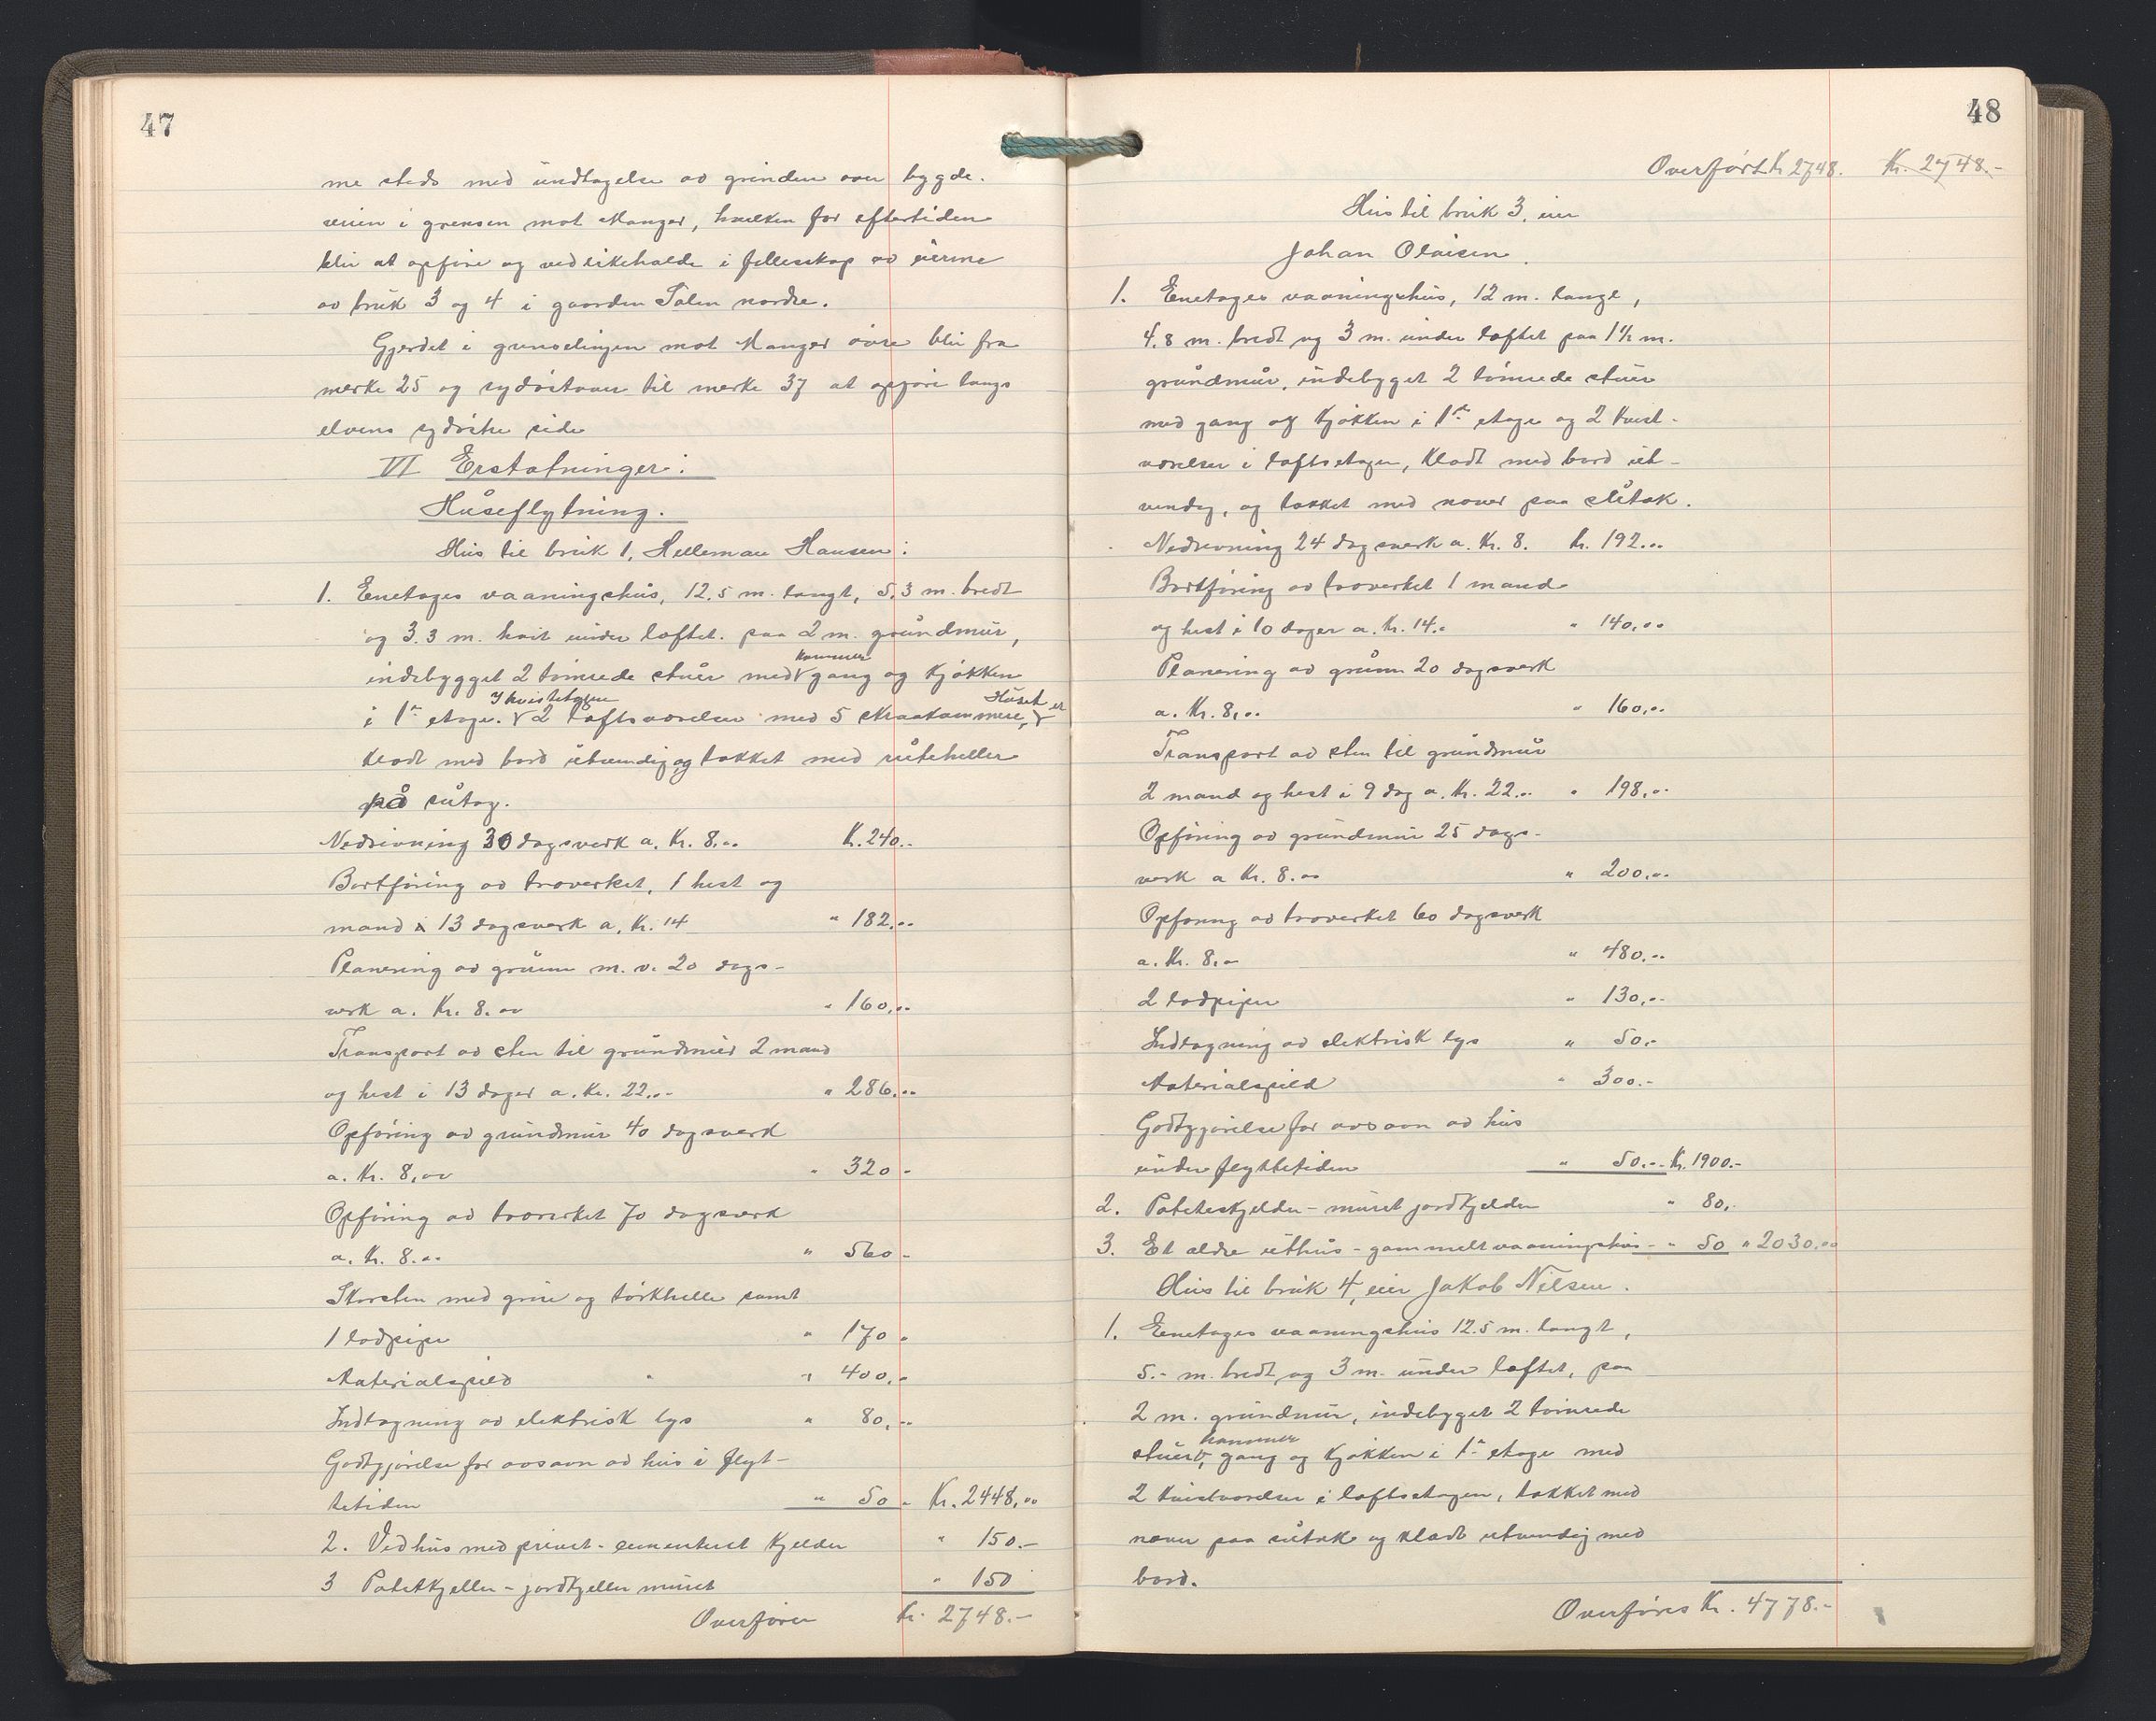 47
me steds med undtagelse av grinden over bygde-
veien i grensen mot Manger, hvilken for eftertiden
blir at opføre og vedlikeholde i fellesskap av eierne
av bruk 3 og 4 i gaarden Tolen nordre.
Gjerdet i grenselinjen mot Manger øvre blir fra
merke 25 og sydöstover til merke 37 at opföre langs
elvens sydöstre side
VI Erstatninger:
Huseflytning.
Hus til bruk 1, Helleman Hansen:
1. Enetages vaaningshus, 12.5 m. langt, 5.3 m. bredt
og 3.3 m. höit under loftet. paa 2 m. grundmur,
kammer
indebygget 2 tömrede stuer med gang og kjökken
I kvistetagen Huset er
i 1ste etage. 2 loftsværelser med 5 skraakammere,
klædt med bord utvendig og tækket med ruteheller
på sutag.
Nedrivning 30 dagsverk a. Kr. 8.00 K. 240.00
Bortföring av træverket, 1 hest og
mand i 13 dagsverk a. Kr. 14 " 182.00
Planering av grunn m. v. 20 dags-
verk a. Kr. 8.00 " 160.00
Transport av sten til grundmur 2 mand
og hest i 13 dager a. Kr. 22.00 " 286.00
Opföring av grundmur 40 dagsverk
a. Kr. 8,00 " 320 -
Opföring av træverket 70 dagsverk
a. Kr. 8.00 " 560 -
Skorsten med grue og törkhelle samt
1 lodpipe " 170 -
Materialspild " 400.-
Indtagning av elektrisk lys " 80.00
Godtgjörelse for avsavn av hus i flyt-
tetiden " 50 - Kr. 2448,00
2. Vedhus med privet - cementeret kjelder " 150.-
3 Potetkjeller - jordkjeller muret " 150
Overföres Kr. 2748.-
48
Overført Kr 2748. Kr. 2748.-
Hus til bruk 3, eier
Johan Olaisen.
1. Enetages vaaningshus, 12 m. langt,
4.8 m. bredt og 3 m. under loftet paa 1½ m.
grundmur, indebygget 2 tömrede stuer
med gang og kjökken i 1ste etage og 2 kvist-
værelser i loftsetagen, klædt med bord ut-
vendig, og tækket med næver paa sutak.
Nedrivning 24 dagsverk a. Kr. 8. Kr. 192.00
Bortföring av træverket 1 mand
og hest i 10 dager a. Kr. 14.- " 140,00
Planering av grunn 20 dagsverk
a. Kr. 8,00 " 160,00
Transport av sten til grundmur
2 mand og hest i 9 dag a. Kr. 22.00 " 198,00
Opföring av grundmur 25 dags-
verk a Kr. 8.00 " 200,00
Opföring av træverket 60 dagsverk
a. Kr. 8,00 " 480,00
2 lodpiper " 130,00
Indtagning av elektrisk lys " 50.-
Materialspild " 300.-
Godtgjörelse for avsavn av hus
under flyttetiden " 50.- Kr. 1900.-
2. Poteteskjelder - muret jordkjelder " 80,-
3. Et eldre uthus - gammelt vaaningshus - " 50 " 2030.00
Hus til bruk 4, eier Jakob Nilsen.
1. Enetages vaaningshus 12.5 m. langt,
5.- m. bredt og 3 m. under loftet, paa
2 m. grundmur, indebyget 2 tömrede
kammer
stuer, gang og kjökken i 1ste etage med
2 kvistværelser i loftsetagen, tækket med
næver paa sutak og klædt utvendig med
bord.
Overföres Kr. 4778.-